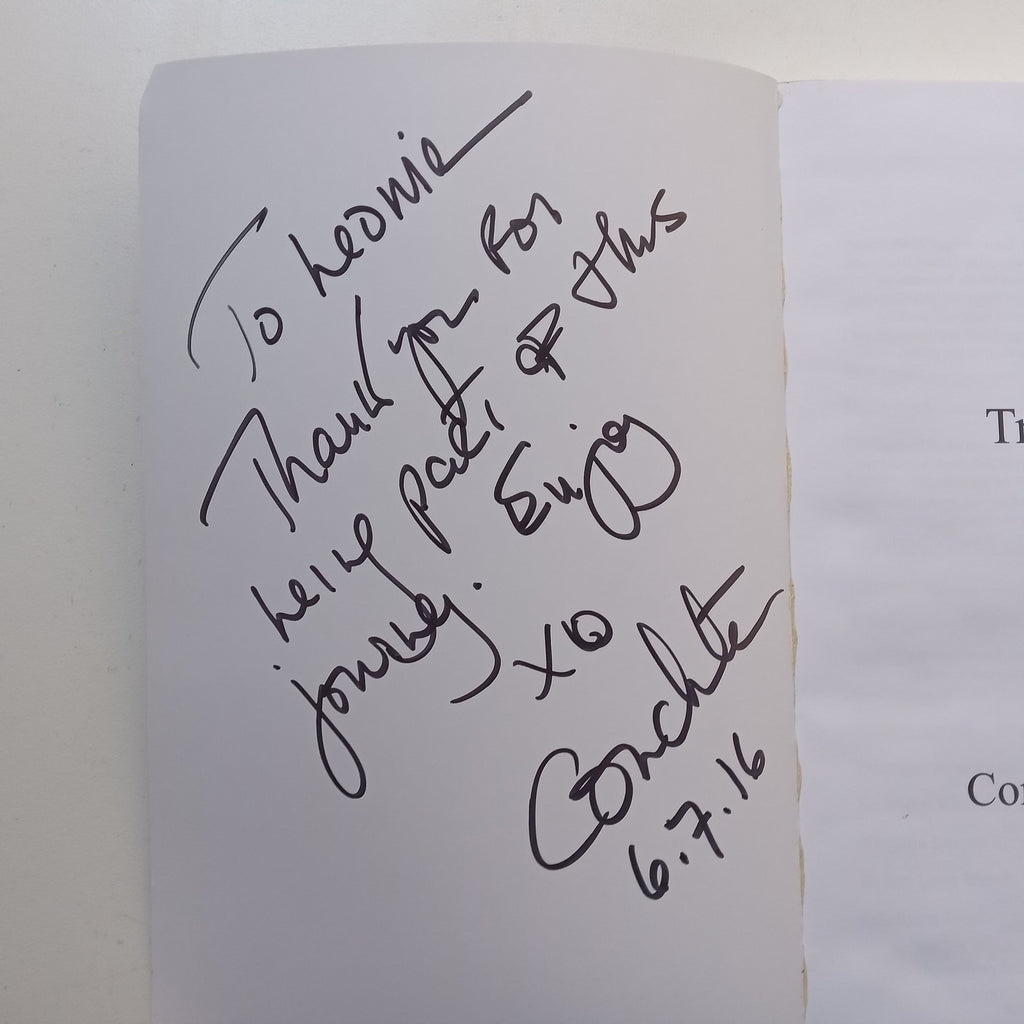 To Leonie
Thank you for
being part of this
journey. Enjoy
XO
Conchita
6.7.16
Tr
Con